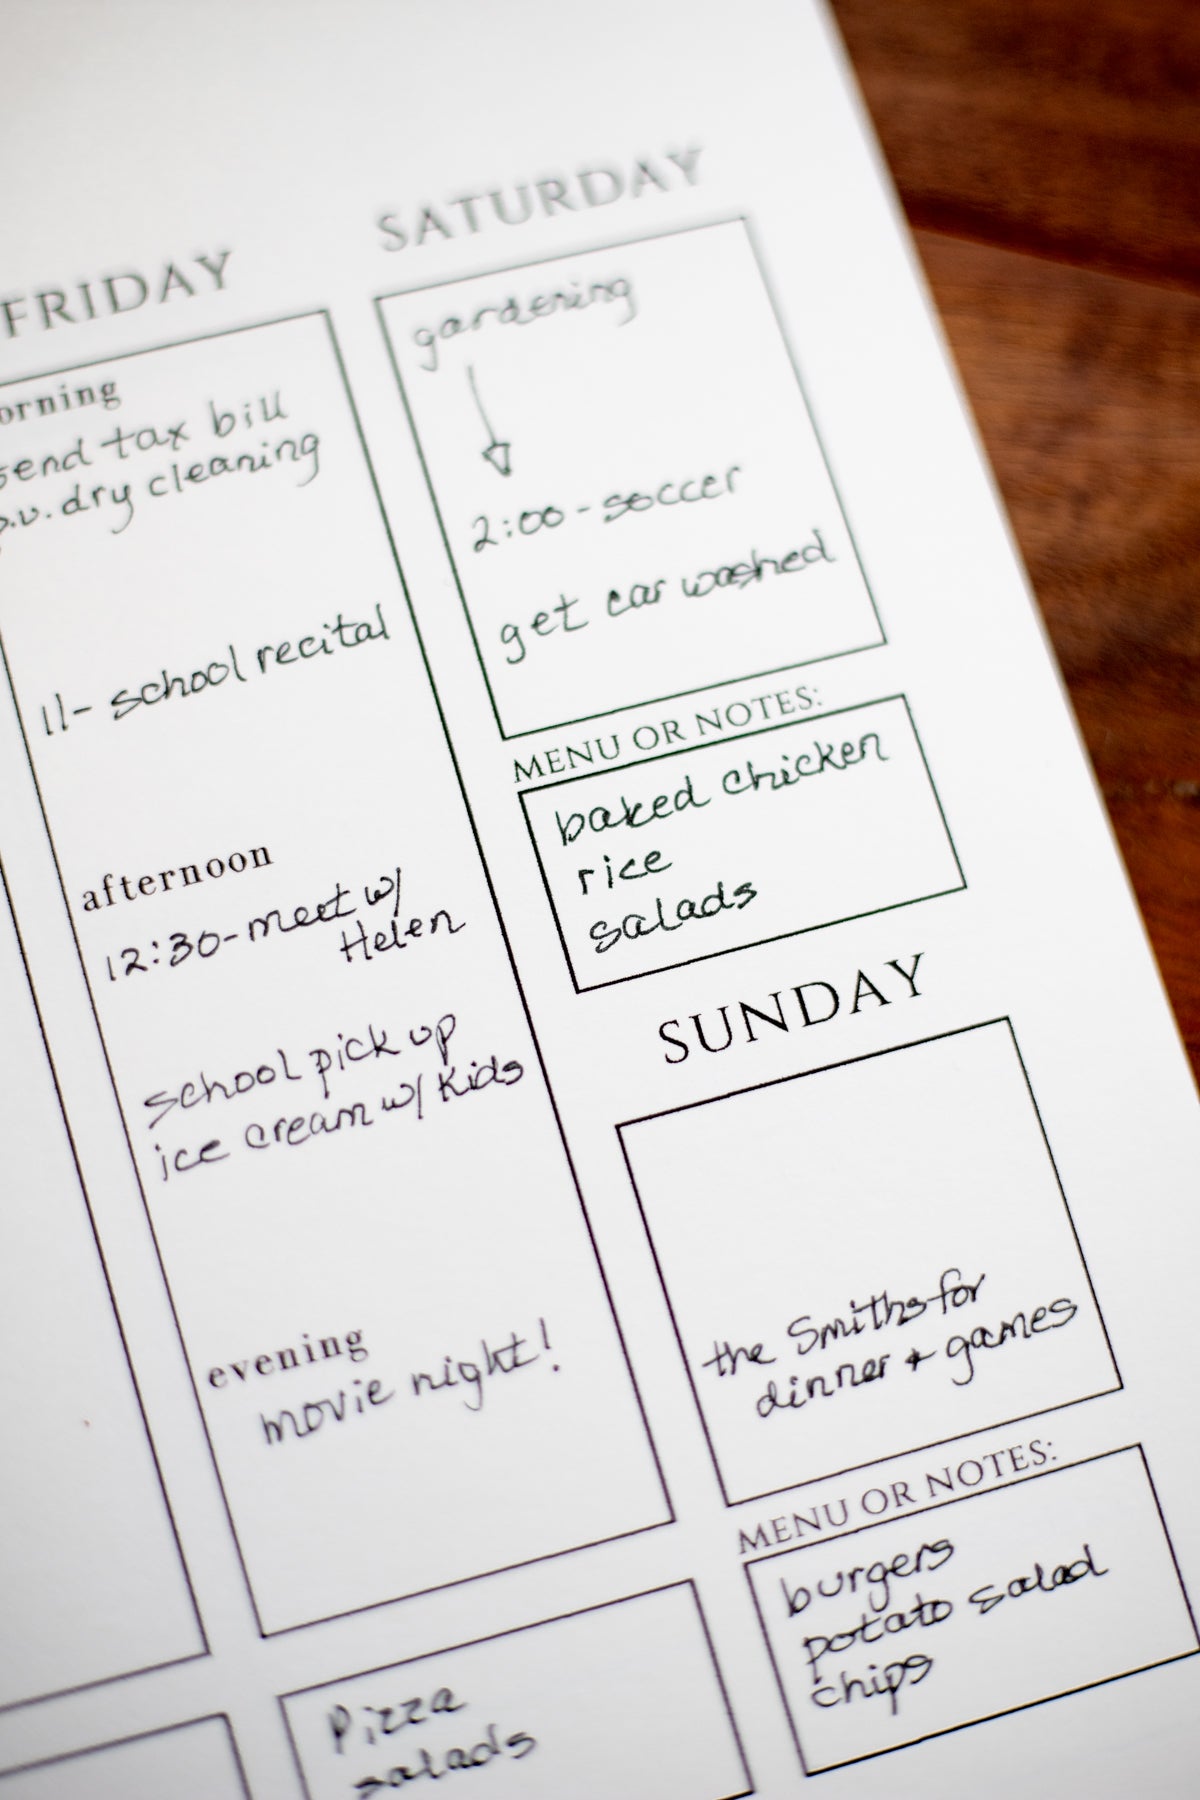 FRIDAY
orning
send tax bill
p.u. dry cleaning
11- school recital
afternoon
12:30-meet w/
Helen
school pick up
ice cream w/ kids
evening
movie night!
Pizza
salads
SATURDAY
gardening
2:00-soccer
get car washed
MENU OR NOTES:
baked chicken
rice
salads
SUNDAY
the Smiths for
dinner + games
MENU OR NOTES:
burgers
potato salad
chips